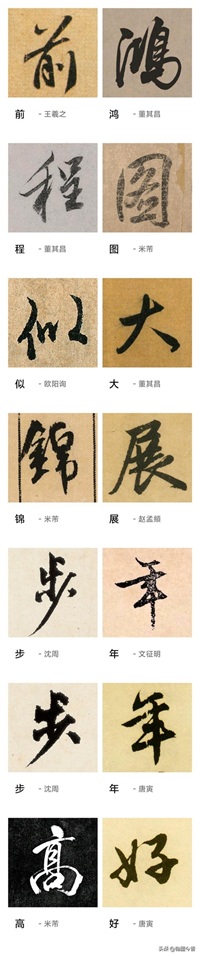 前 鴻
前 - 王羲之 鸿 - 董其昌
程 圖
程 - 董其昌 图 - 米芾
似 大
似 - 欧阳询 大 - 董其昌
錦 展
锦 - 米芾 展 - 赵孟頫
步 年
步 - 沈周 年 - 文征明
步 年
步 - 沈周 年 - 唐寅
高 好
高 - 米芾 好 - 唐寅
头条